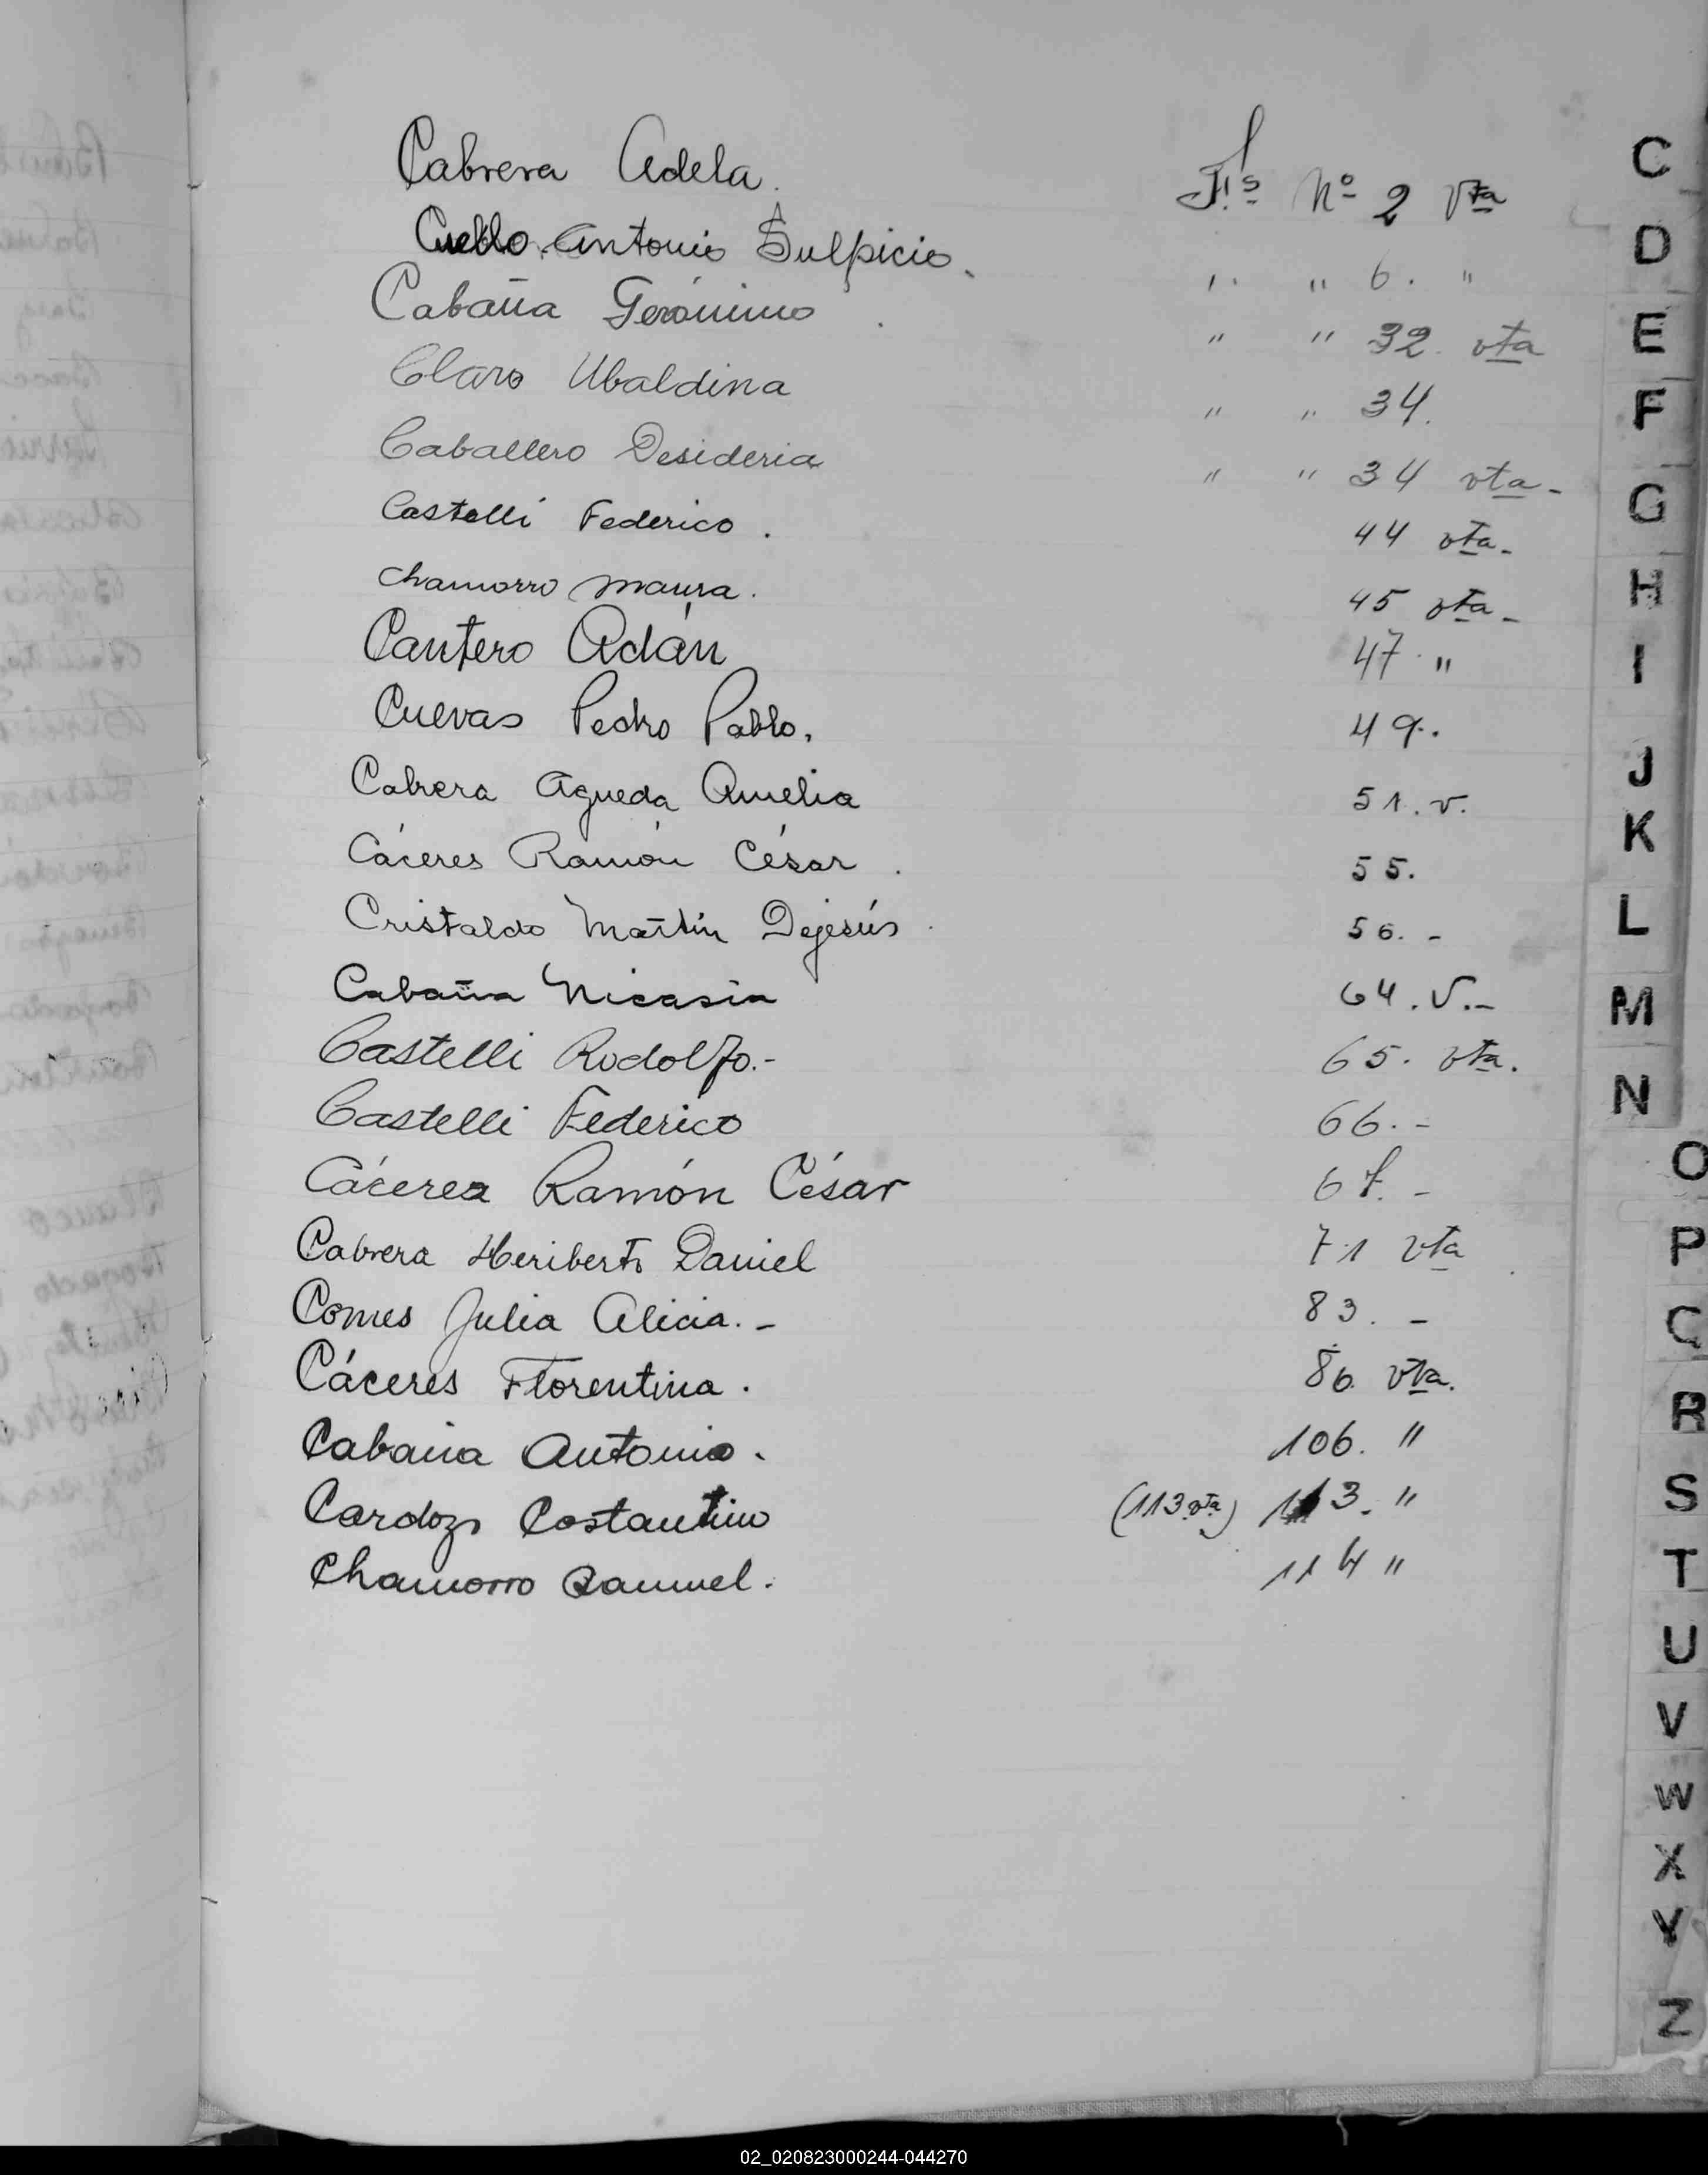 Cabrera Adela. Fls Nº 2 Vta
Cuello Antonio Sulpicio. " " 6. "
Cabaña Gerónimo " " 32. vta
Claro Ubaldina " " 34.
Caballero Desideria " " 34 vta-
Castelli Federico. 44 vta-
Chamorro Maura. 45 vta-
Cantero Adán 47 "
Cuevas Pedro Pablo. 49.
Cabrera Agueda Amelia 51. v.
Cáceres Ramón César. 55.
Cristaldo Martín Dejesús 56. -
Cabaña Nicasia 64. V.-
Castelli Rodolfo.- 65. vta.
Castelli Federico 66.-
Cáceres Ramón César -
Cabrera Heriberto Daniel 71 vta
Comes Julia Alicia.- 83. -
Cáceres Florentina. 86 vta.
Cabaña Antonio. 106. "
Cardozo Costantino (113 vta) 113. "
Chamorro Samuel. 114 "
C
D
E
F
G
H
I
J
K
L
M
N
O
P
Q
R
S
T
U
V
W
X
Y
Z
02_020823000244-044270